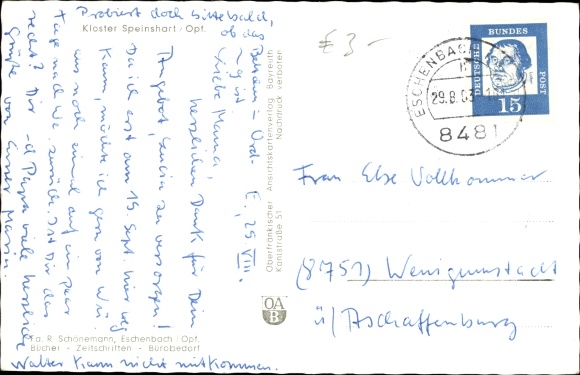 Probiert doch bitte bald,
ob das
Balsam-Ord-
ng ist.
Kloster Speinshart/Opf.
E., 29.VIII.
Liebe Mama,
herzlichen Dank für Dein
Angebot, Lucia zu versorgen!
Da ich erst am 15. Sept. hier weg
kann, möchte ich gern von Wü.
aus noch einmal auf ein paar
Tage nach We. zurück. Ist Dir das
recht? Dir u. Papa viele herzliche
Grüße von Eurer Maria.
Walter kann nicht mitkommen.
Fa. R. Schönemann, Eschenbach/Opf.
Bücher - Zeitschriften - Bürobedarf
Oberfränkischer Ansichtskartenverlag Bayreuth
Kantstraße 51 Nachdruck verboten
OA
B
€ 3 -
ESCHENBACH
29.8.63
8481
DEUTSCHE BUNDESPOST
15
Frau Else Vollkommer
(8751) Wenigumstadt
ü/Aschaffenburg